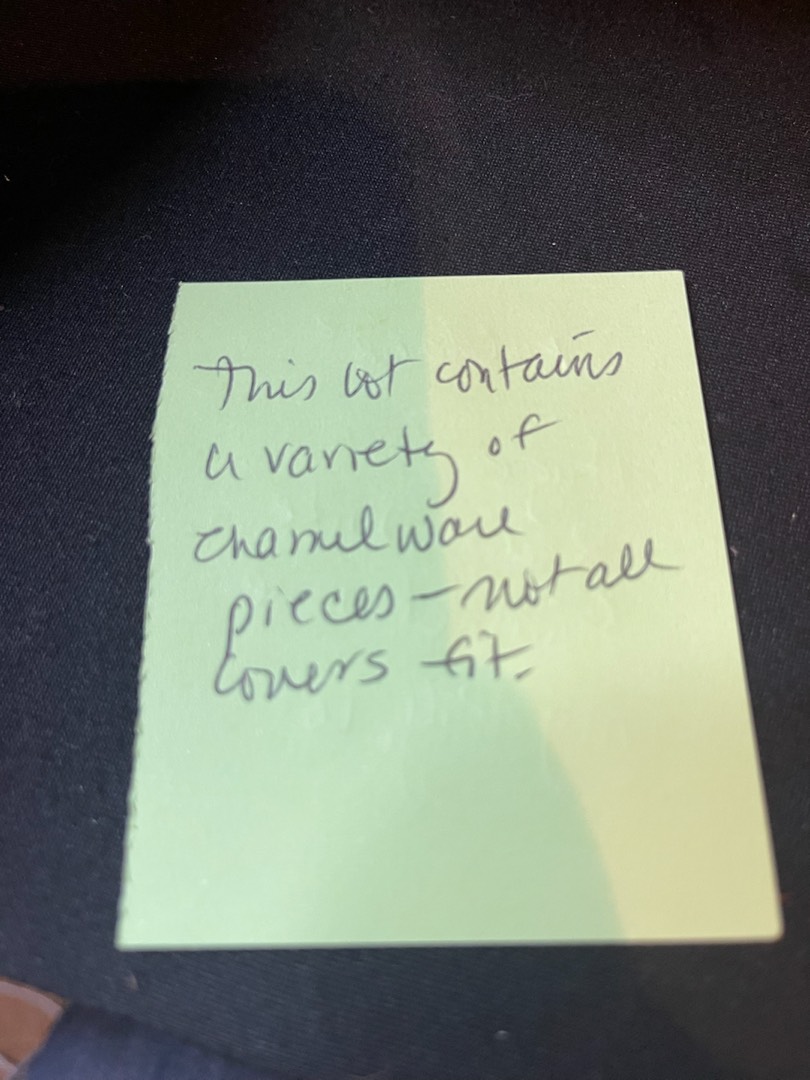 This lot contains
a variety of
enamelware
pieces - not all
covers fit.